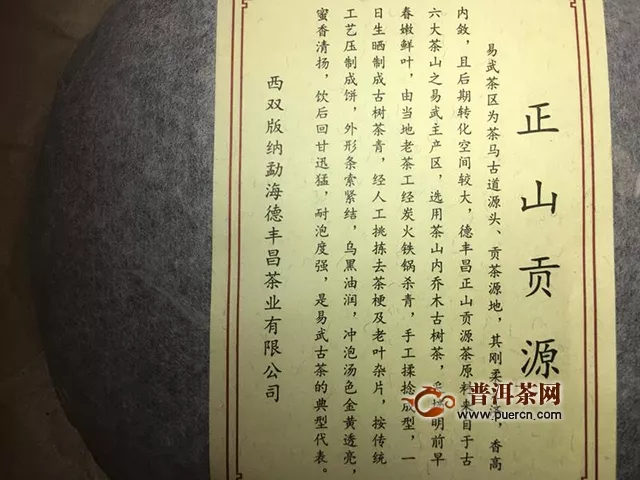 正山贡源
易武茶区为茶马古道源头、贡茶源地，其刚柔济，香高
内敛，且后期转化空间较大，德丰昌正山贡源茶原料来自于古
六大茶山之易武主产区，选用茶山内乔木古树茶，明前早
春嫩鲜叶，由当地老茶工经炭火铁锅杀青，手工揉捻成型，一
日生晒制成古树茶青，经人工挑拣去茶梗及老叶杂片，按传统
工艺压制成饼，外形条索紧结，乌黑油润，冲泡汤色金黄透亮，
蜜香清扬，饮后回甘迅猛，耐泡度强，是易武古茶的典型代表。
西双版纳勐海德丰昌茶业有限公司
普洱茶网
www.puercn.com